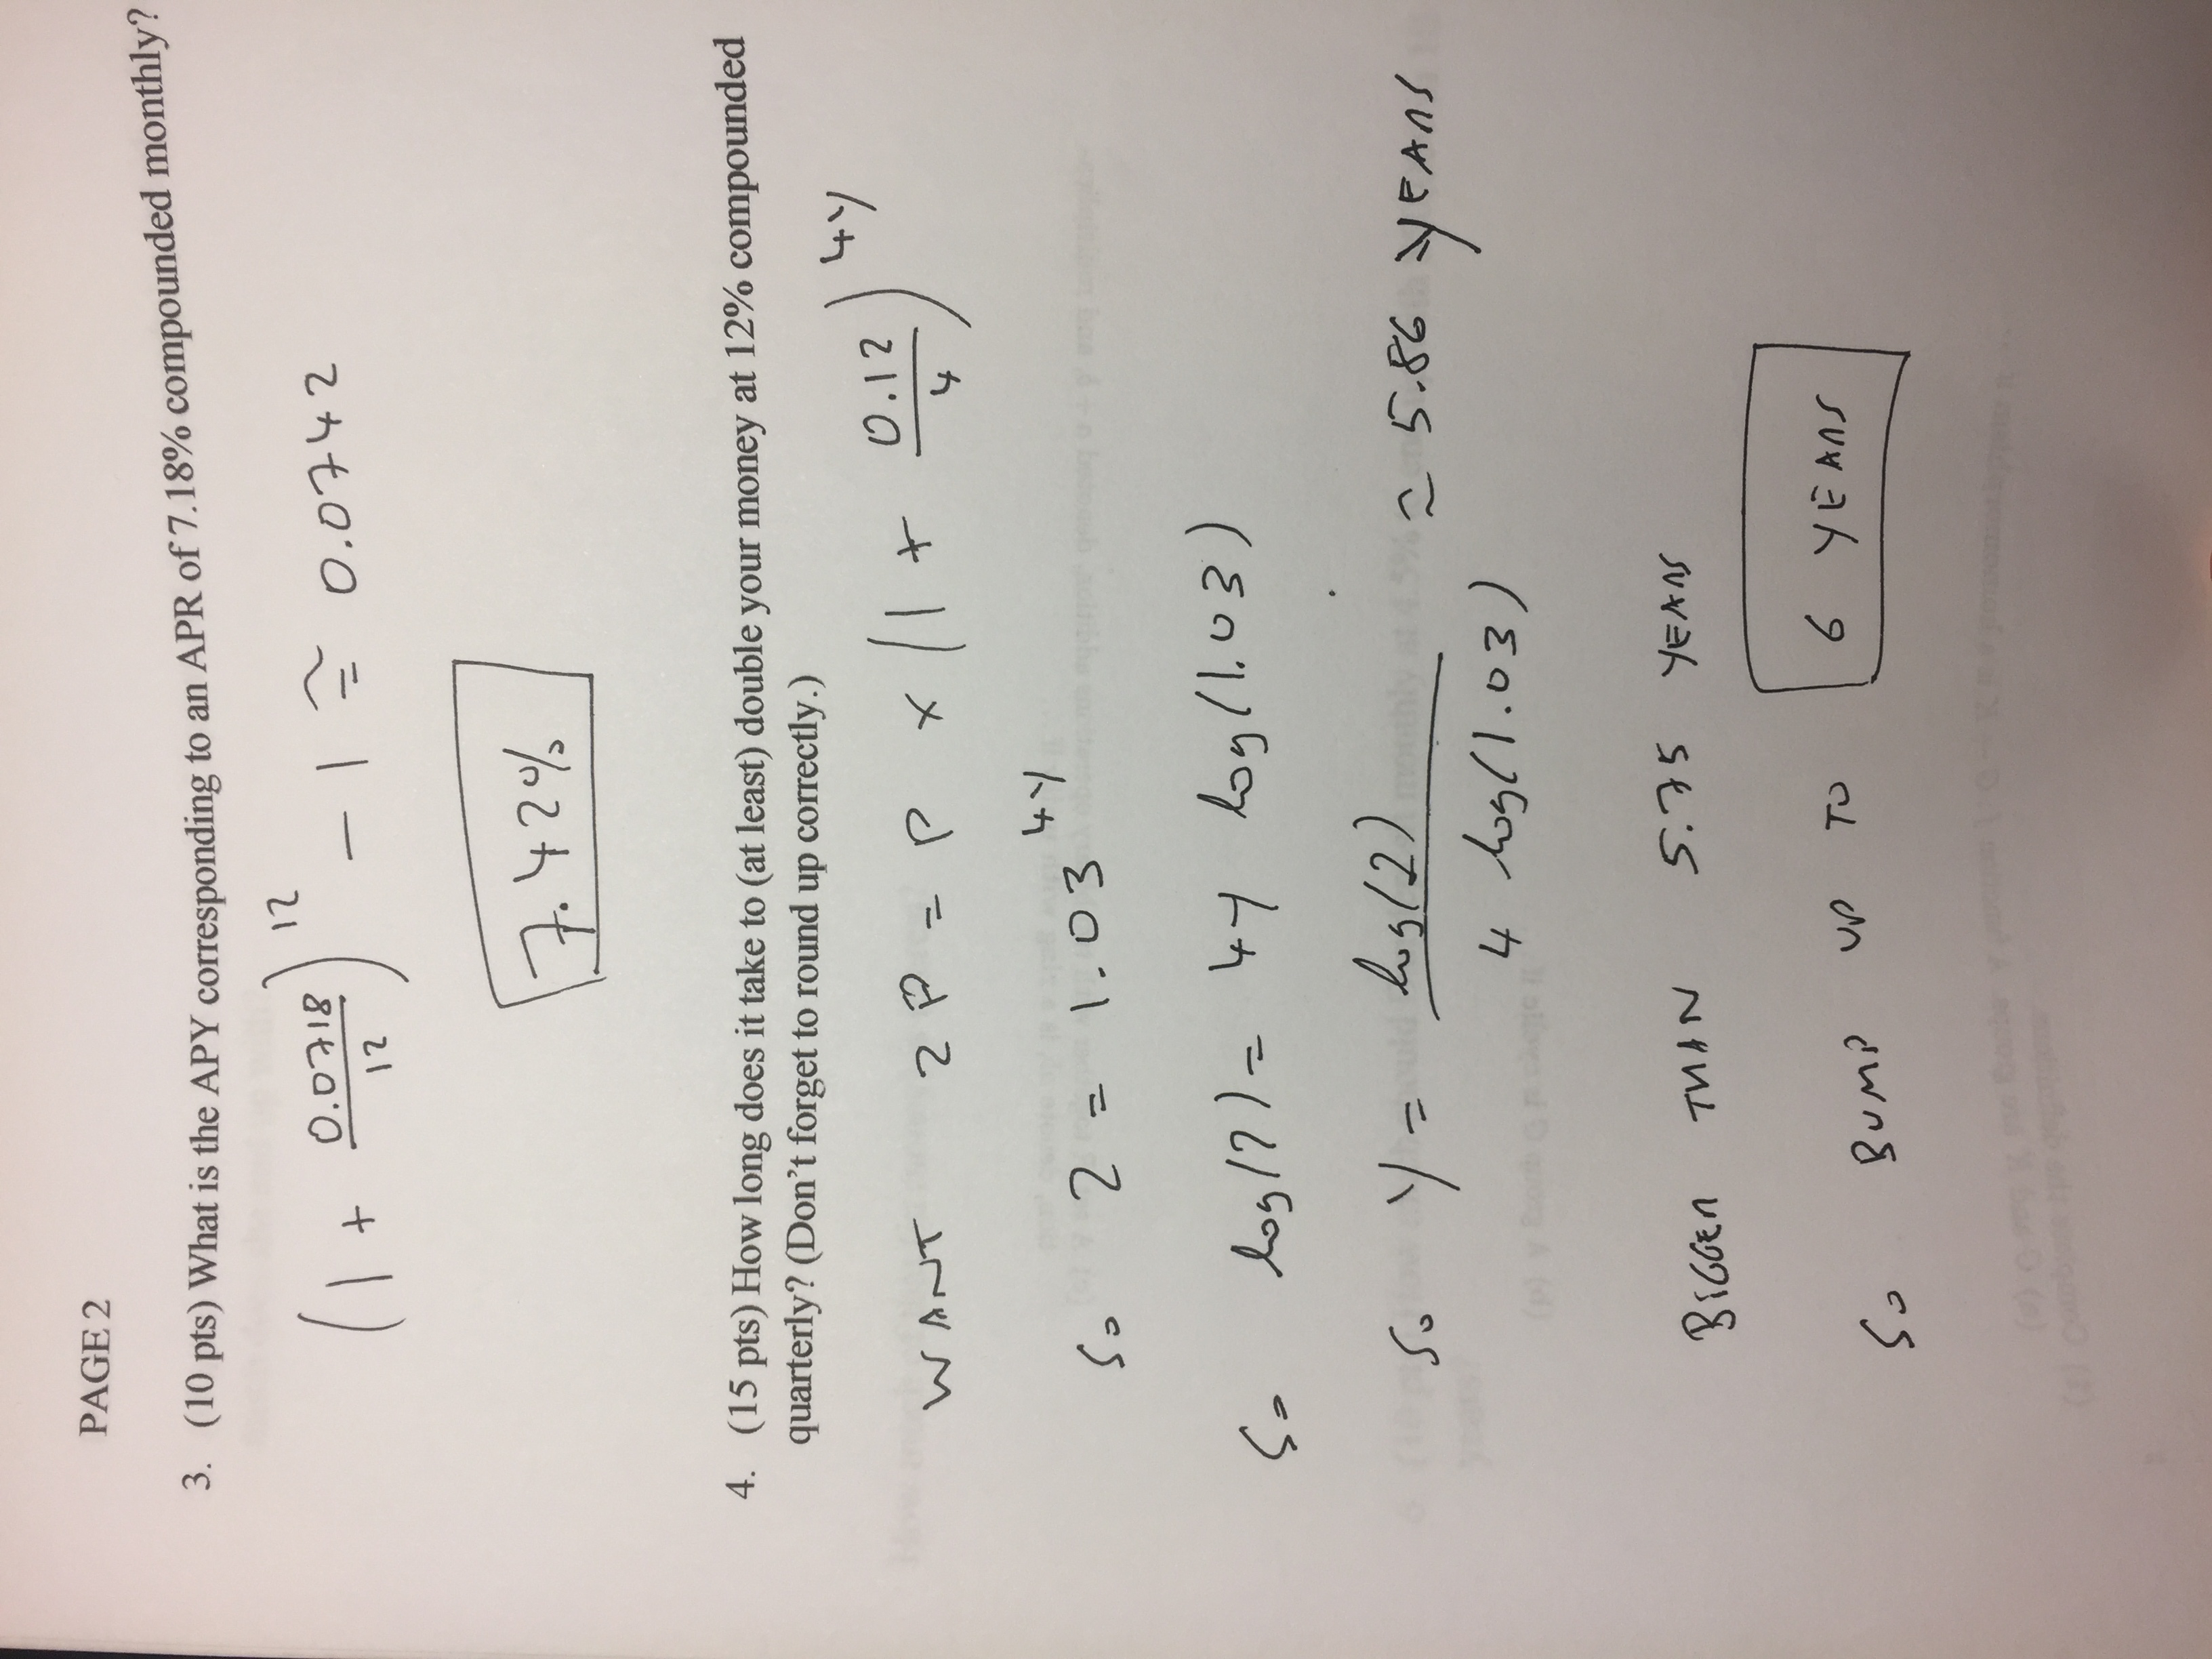 PAGE 2
3. (10 pts) What is the APY corresponding to an APR of 7.18% compounded monthly?
(1 + 0.0718/12)^12 − 1 ≅ 0.0742
7.42%
4. (15 pts) How long does it take to (at least) double your money at 12% compounded
quarterly? (Don't forget to round up correctly.)
WANT 2P = P × (1 + 0.12/4)^4Y
So 2 = 1.03^4Y
So log(2) = 4Y log(1.03)
So Y = log(2)/4 log(1.03) ≈ 5.86 YEARS
BIGGER THAN 5.75 YEARS
So BUMP UP TO 6 YEARS